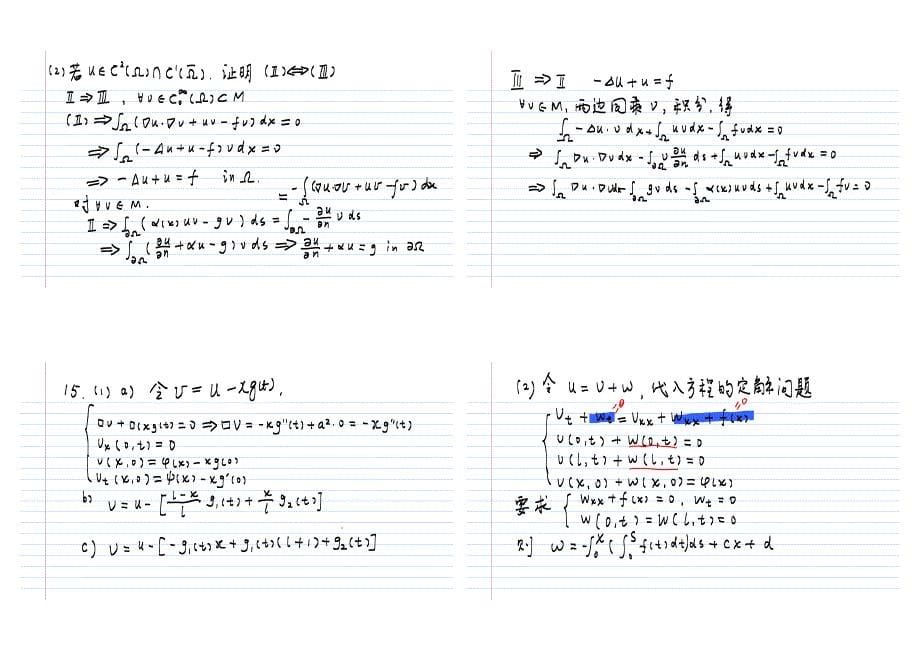 (2)若 u∈C²(Ω)∩C¹(Ω̄). 证明 (Ⅱ)⇔(Ⅲ)
Ⅱ⇒Ⅲ, ∀v∈C₀^∞(Ω)⊂M
(Ⅱ)⇒∫_Ω(∇u·∇v+uv-fv)dx=0
⇒∫_Ω(-Δu+u-f)vdx=0
⇒ -Δu+u=f in Ω.
对∀v∈M.
=-∫_Ω(∇u·∇v+uv-fv)dx
Ⅱ⇒∫_∂Ω(α(x)uv-gv)ds=∫_∂Ω-∂u/∂n v ds
⇒∫_∂Ω(∂u/∂n+αu-g)vds⇒∂u/∂n+αu=g in ∂Ω
Ⅲ⇒Ⅱ -Δu+u=f
∀v∈M, 两边同乘v, 积分, 得
∫_Ω-Δu·vdx+∫_Ωuvdx-∫_Ωfvdx=0
⇒ ∫_Ω∇u·∇vdx-∫_∂Ωv∂u/∂n ds+∫_Ωuvdx-∫_Ωfvdx=0
⇒∫_Ω∇u·∇vdx-∫_∂Ωgvds-∫_∂Ωα(x)uvds+∫_Ωuvdx-∫_Ωfv=0
15. (1) a) 令 v=u-xg(t),
□v+□(xg(t))=0⇒□v=-xg''(t)+a²·0=-xg''(t)
v_x(0,t)=0
v(x,0)=φ(x)-xg(0)
v_t(x,0)=ψ(x)-xg'(0)
b) v=u-[(l-x)/l g₁(t)+x/l g₂(t)]
c) v=u-[-g₁(t)x+g₁(t)(l+1)+g₂(t)]
(2)令 u=v+w, 代入方程的定解问题
v_t+w_t=v_xx+w_xx+f(x)
=0 =0
v(0,t)+w(0,t)=0
v(l,t)+w(l,t)=0
v(x,0)+w(x,0)=φ(x)
要求 w_xx+f(x)=0, w_t=0
w(0,t)=w(l,t)=0
则 w=-∫₀^x(∫₀^s f(t)dt)ds+cx+d